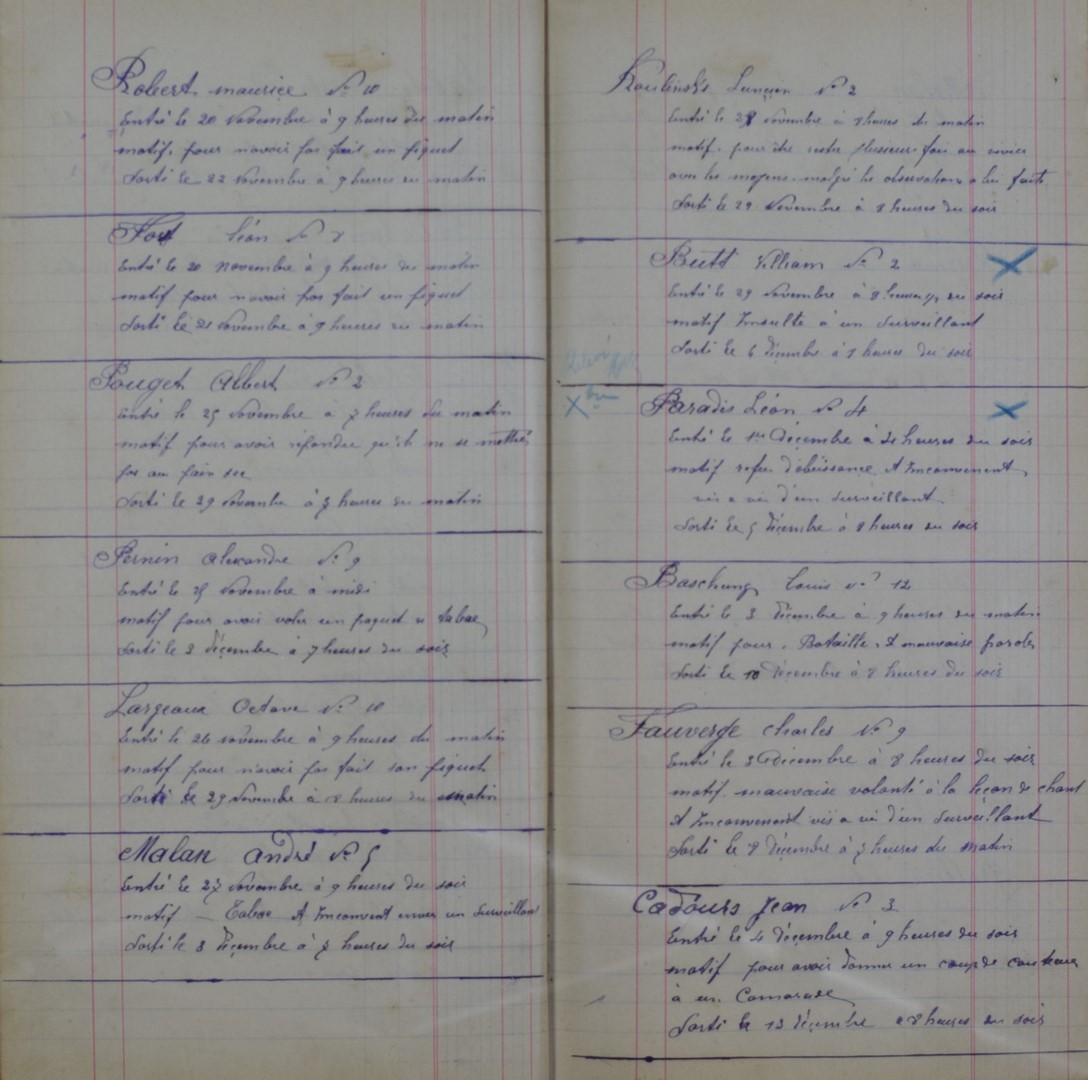 Robert maurice No 10
Entré le 20 Novembre à 9 heures du matin
motif. pour n'avoir pas fait un piquet
Sorti le 22 Novembre à 9 heures du matin
Fort Léon No 8
Entré le 20 novembre à 9 heures du matin
motif pour n'avoir pas fait un piquet
Sorti le 21 Novembre à 9 heures du matin
Pouget Albert No 2
Entré le 25 Novembre à 7 heures du matin
motif pour avoir répondu qu'il ne se mettré
pas au pain sec
Sorti le 29 Novembre à 7 heures du matin
Pernin Alexandre No 9
Entré le 25 Novembre à midi
motif pour avoir voler un paquet de tabac
Sorti le 3 décembre à 7 heures du soir
Largeaux Octave No 10
Entré le 26 novembre à 9 heures du matin
motif pour n'avoir pas fait son piquet
Sorti le 29 Novembre à 8 heures du matin
Malan André No 5
Entré le 27 Novembre à 9 heures du soir
motif — Tabac et Inconvent envers un Surveillant
Sorti le 3 Décembre à 7 heures du soir
Lucien No 2
Entré le 28 Novembre à 8 heures du matin
motif. pour être rester plusieurs fois au
avec les moyens. malgré les observations a lui faite
Sorti le 29 Novembre à 8 heures du soir
Butt William No 2
Entré le 29 Novembre à 8 heures du soir
motif Insulte à un Surveillant
Sorti le 6 Décembre à 8 heures du soir
Paradis Léon No 4
Entré le 1er Décembre à 4 heures du soir
motif refus d'obéissance et Inconvenent
vis a vis d'un surveillant
Sorti le 5 Décembre à 8 heures du soir
Baschung Louis No 12
Entré le 3 Décembre à 9 heures du matin
motif pour. Bataille. et mauvaise paroles
Sorti le 10 Décembre à 8 heures du soir
Fauverge Charles No 9
Entré le 3 Décembre à 8 heures du soir
motif. mauvaise volonté à la leçon de chant
et Inconvenant vis a vis d'un Surveillant
Sorti le 8 Décembre à 7 heures du matin
Cadours Jean No 3
Entré le 4 Décembre à 9 heures du soir
motif pour avoir donner un coup de couteau
à un Camarade
Sorti le 12 Décembre a 8 heures du soir